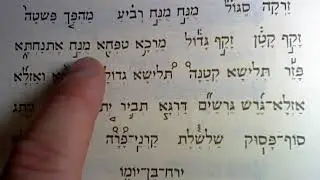 זַרְקָה סֶגוֹל מֻנַּח מֻנַּח רְבִיעַ מַהְפַּךְ פַּשְׁטָה
זָקֵף קָטֹן זָקֵף גָּדוֹל מֵרְכָא טִפְּחָא מֻנַּח אֶתְנַחְתָּא
פָּזֵר תְּלִישָׁא קְטַנָּה תְּלִישָׁא וְאַזְלָא
אַזְלָא־גֵּרֵשׁ גֵּרְשַׁיִם דַּרְגָּא תְּבִיר
סוֹף־פָּסוּק שַׁלְשֶׁלֶת קַרְנֵי־פָרָה
יֵרֵחַ־בֶּן־יוֹמוֹ